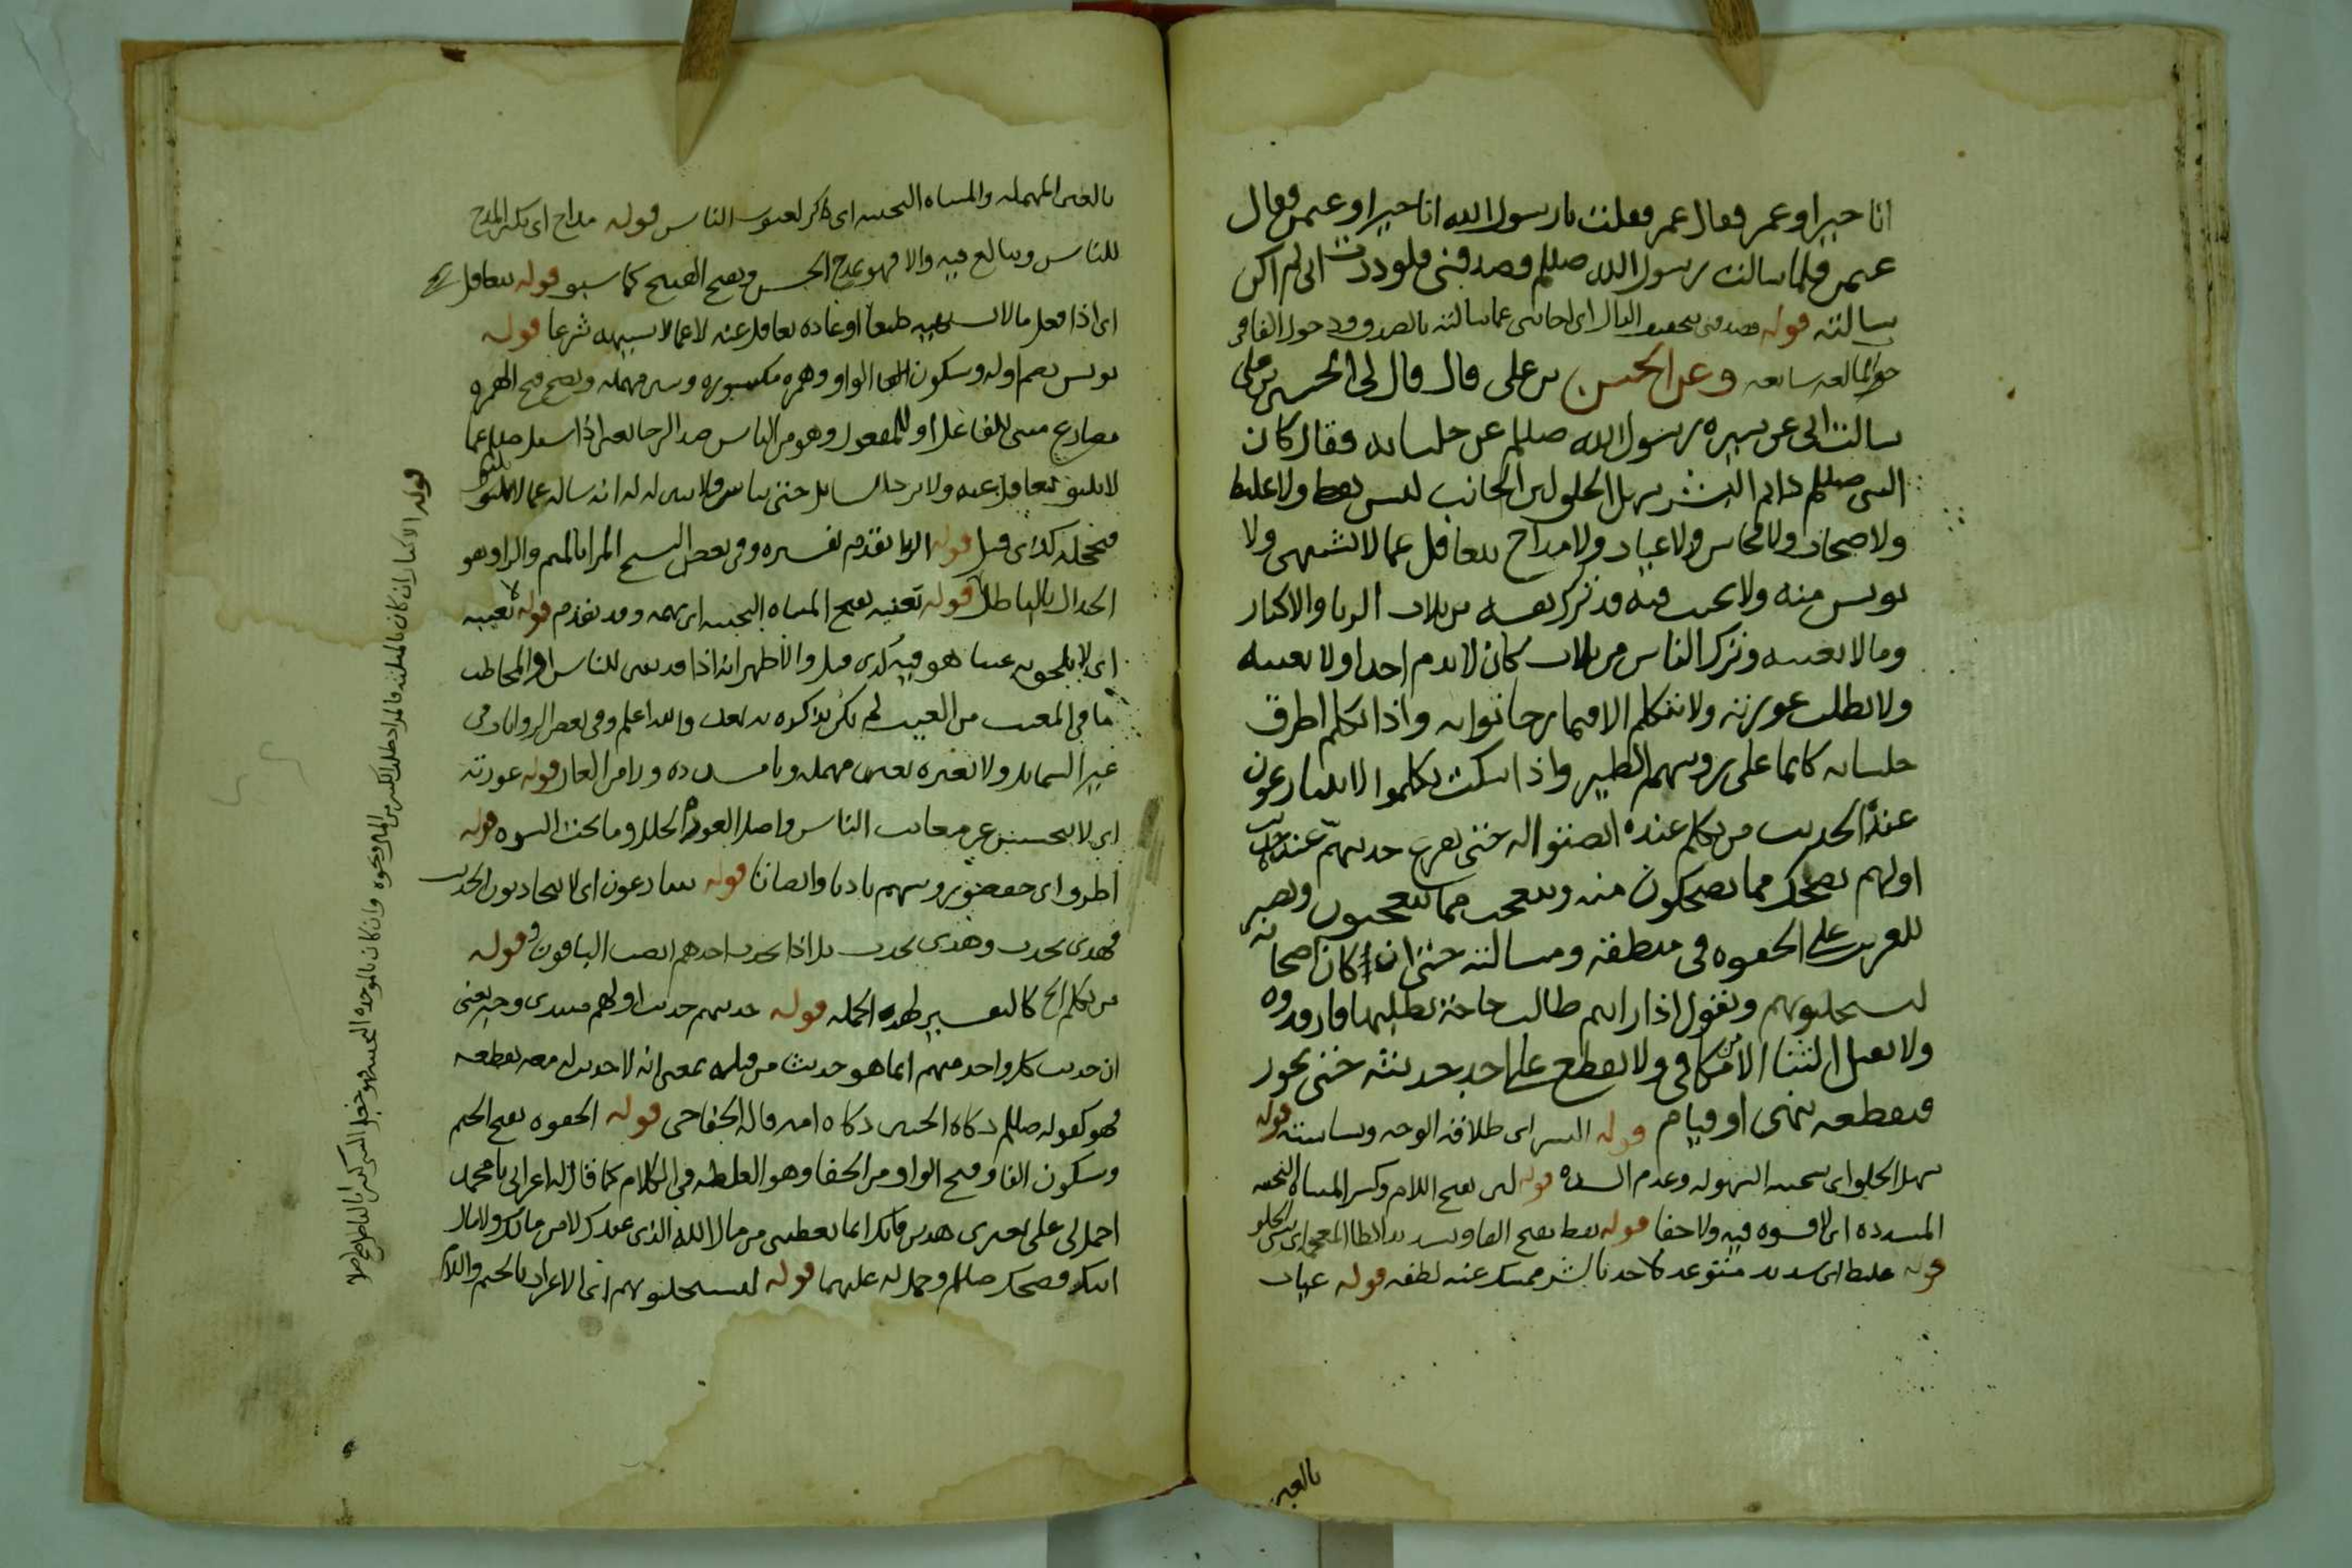 انا خير او عمر فقال عمر فقلت يا رسول الله انا خير او عثمن فقال
عثمن فلما سالت رسول الله صللم فصدقني فلوددت اني لم اكن
سالته قوله فصدقني بتخفيف الدال اي اجابني عما سالته بالصدق ودخول الفا في
جواب لما لغه سايغه وعن الحسن بن علي قال قال لي الحسين بن علي
سالت ابي عن سيره رسول الله صللم عن جلسايه فقال كان
النبي صللم دايم البشر سهل الخلق لين الجانب ليس بفظ ولا غليظ
ولا صخاب ولا فحاش ولا عياب ولا مداح يتغافل عما لا يشتهي ولا
يويس منه ولا يخيب فيه قد ترك نفسه من ثلاث الريا والاكثار
وما لا يعنيه وترك الناس من ثلاث كان لا يذم احدا ولا يعيبه
ولا يطلب عورته ولا يتكلم الا فيما رجا ثوابه واذا تكلم اطرق
جلساه كانما على روسهم الطير واذا سكت تكلموا لا يتنازعون
عنده الحديث من تكلم عنده انصتوا له حتى يفرغ حديثهم عنده حديث
اولهم يضحك مما يضحكون منه ويتعجب مما يتعجبون ويصبر
للغريب على الجفوه في منطقه ومسالته حتى ان كان اصحابه
ليستجلبونهم ويقول اذا رايتم طالب حاجة يطلبها فارفدوه
ولا يقبل الثنا الا من مكافي ولا يقطع على احد حديثه حتى يجوز
فيقطعه بنهي او قيام قوله البشر اي طلاقه الوجه وبشاشته قوله
سهل الخلق اي سجيته السهوله وعدم الشده قوله لين بفتح اللام وكسر المثناه التحتيه
المشدده اي لا قسوه فيه ولا جفا قوله بفظ بفتح الفا وتشديد الظا المعجمه اي سيي الخلق
قوله غليظ اي شديد قوله عياب
بالعين
بالعين المهمله والمثناه التحتيه اي ذاكر لعيوب الناس قوله مداح اي يكثر المدح
للناس ويبالغ فيه والا فهو يمدح الحسن ويقبح القبيح كما سبق قوله يتغافل
اي اذا فعل ما لا يشتهيه طبعا او عاده تغافل عنه لا عما لا يشتهيه شرعا قوله
يويس بضم اوله وسكون الواو وهمزه مكسوره وسين مهمله ويصح فتح الهمزه
مضارع مبني للفاعل او للمفعول وهو من الياس ضد الرجا يعني اذا سيل صللم عما
لا يليق تغافل عنه ولا يرد السايل حتى يياس ولا يبين له انه ساله عما لا يليق
فيخجله كذا قيل قوله الريا تقدم تفسيره وفي بعض النسخ المرا بالميم والرا وهو
الجدال بالباطل قوله يعنيه بفتح المثناه التحتيه اي يهمه وقد تقدم قوله لا يعيبه
اي لا يلحق به عيبا هو فيه كذي قيل والاظهر انه اذا قد يبين للناس او المخاطب
ما في المعيب من العيب لم يكن يذكره بعد والله اعلم وفي بعض الروايات في
غير الشمايل ولا يعيره بعين مهمله ويا مشدده ورا من العار قوله عورته
اي لا يتجسس عن معايب الناس واصل العوره الخلل وما تحت السوه قوله
اطرق اي خفضوا روسهم تادبا وانصاتا قوله يتنازعون اي لا يتجاذبون الحديث
فهذي يحدث وهذي يحدث بل اذا تحدث احدهم انصت الباقون قوله
من تكلم الخ كالتفسير لهذه الجمله قوله حديثهم حديث اولهم مبتدى وخبر يعني
ان حديث كل واحد منهم انما هو حديث من قبله بمعنى انه لا حديث له معه يقطعه
فهو كقوله صللم ذكاه الجنين ذكاه امه قاله الخفاجي قوله الجفوه بفتح الجيم
وسكون الفا وفتح الواو من الجفا وهو الغلظه في الكلام كما قال له اعرابي يا محمد
احمل لي على بعيري هذين فانك انما تعطيني من مال الله الذي عندك لا من مالك ولا مال
ابيك فضحك صللم وحمل له عليهما قوله ليستجلبونهم اي الاعراب بالجيم واللام
قوله الاكثار ان كان بالمثلثه فالمراد طلب الكثير من المال ونحوه وان كان بالموحده التحتيه فهو جعل الشي كبيرا